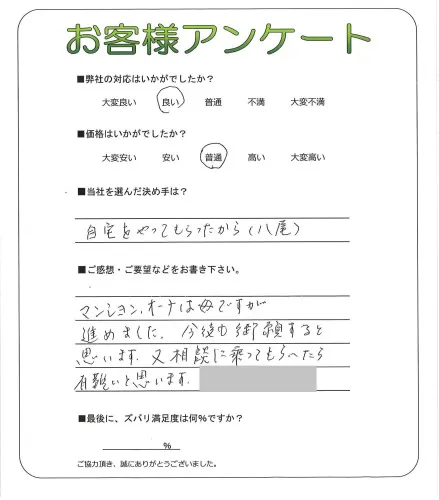 お客様アンケート
■弊社の対応はいかがでしたか？
大変良い 良い 普通 不満 大変不満
■価格はいかがでしたか？
大変安い 安い 普通 高い 大変高い
■当社を選んだ決め手は？
自宅をやってもらったから（八尾）
■ご感想・ご要望などをお書き下さい。
マンション、オーナーは母ですが
進めました。今後も御願すると
思います。又相談に乗ってもらへたら
有難いと思います。
■最後に、ズバリ満足度は何%ですか？
%
ご協力頂き、誠にありがとうございました。